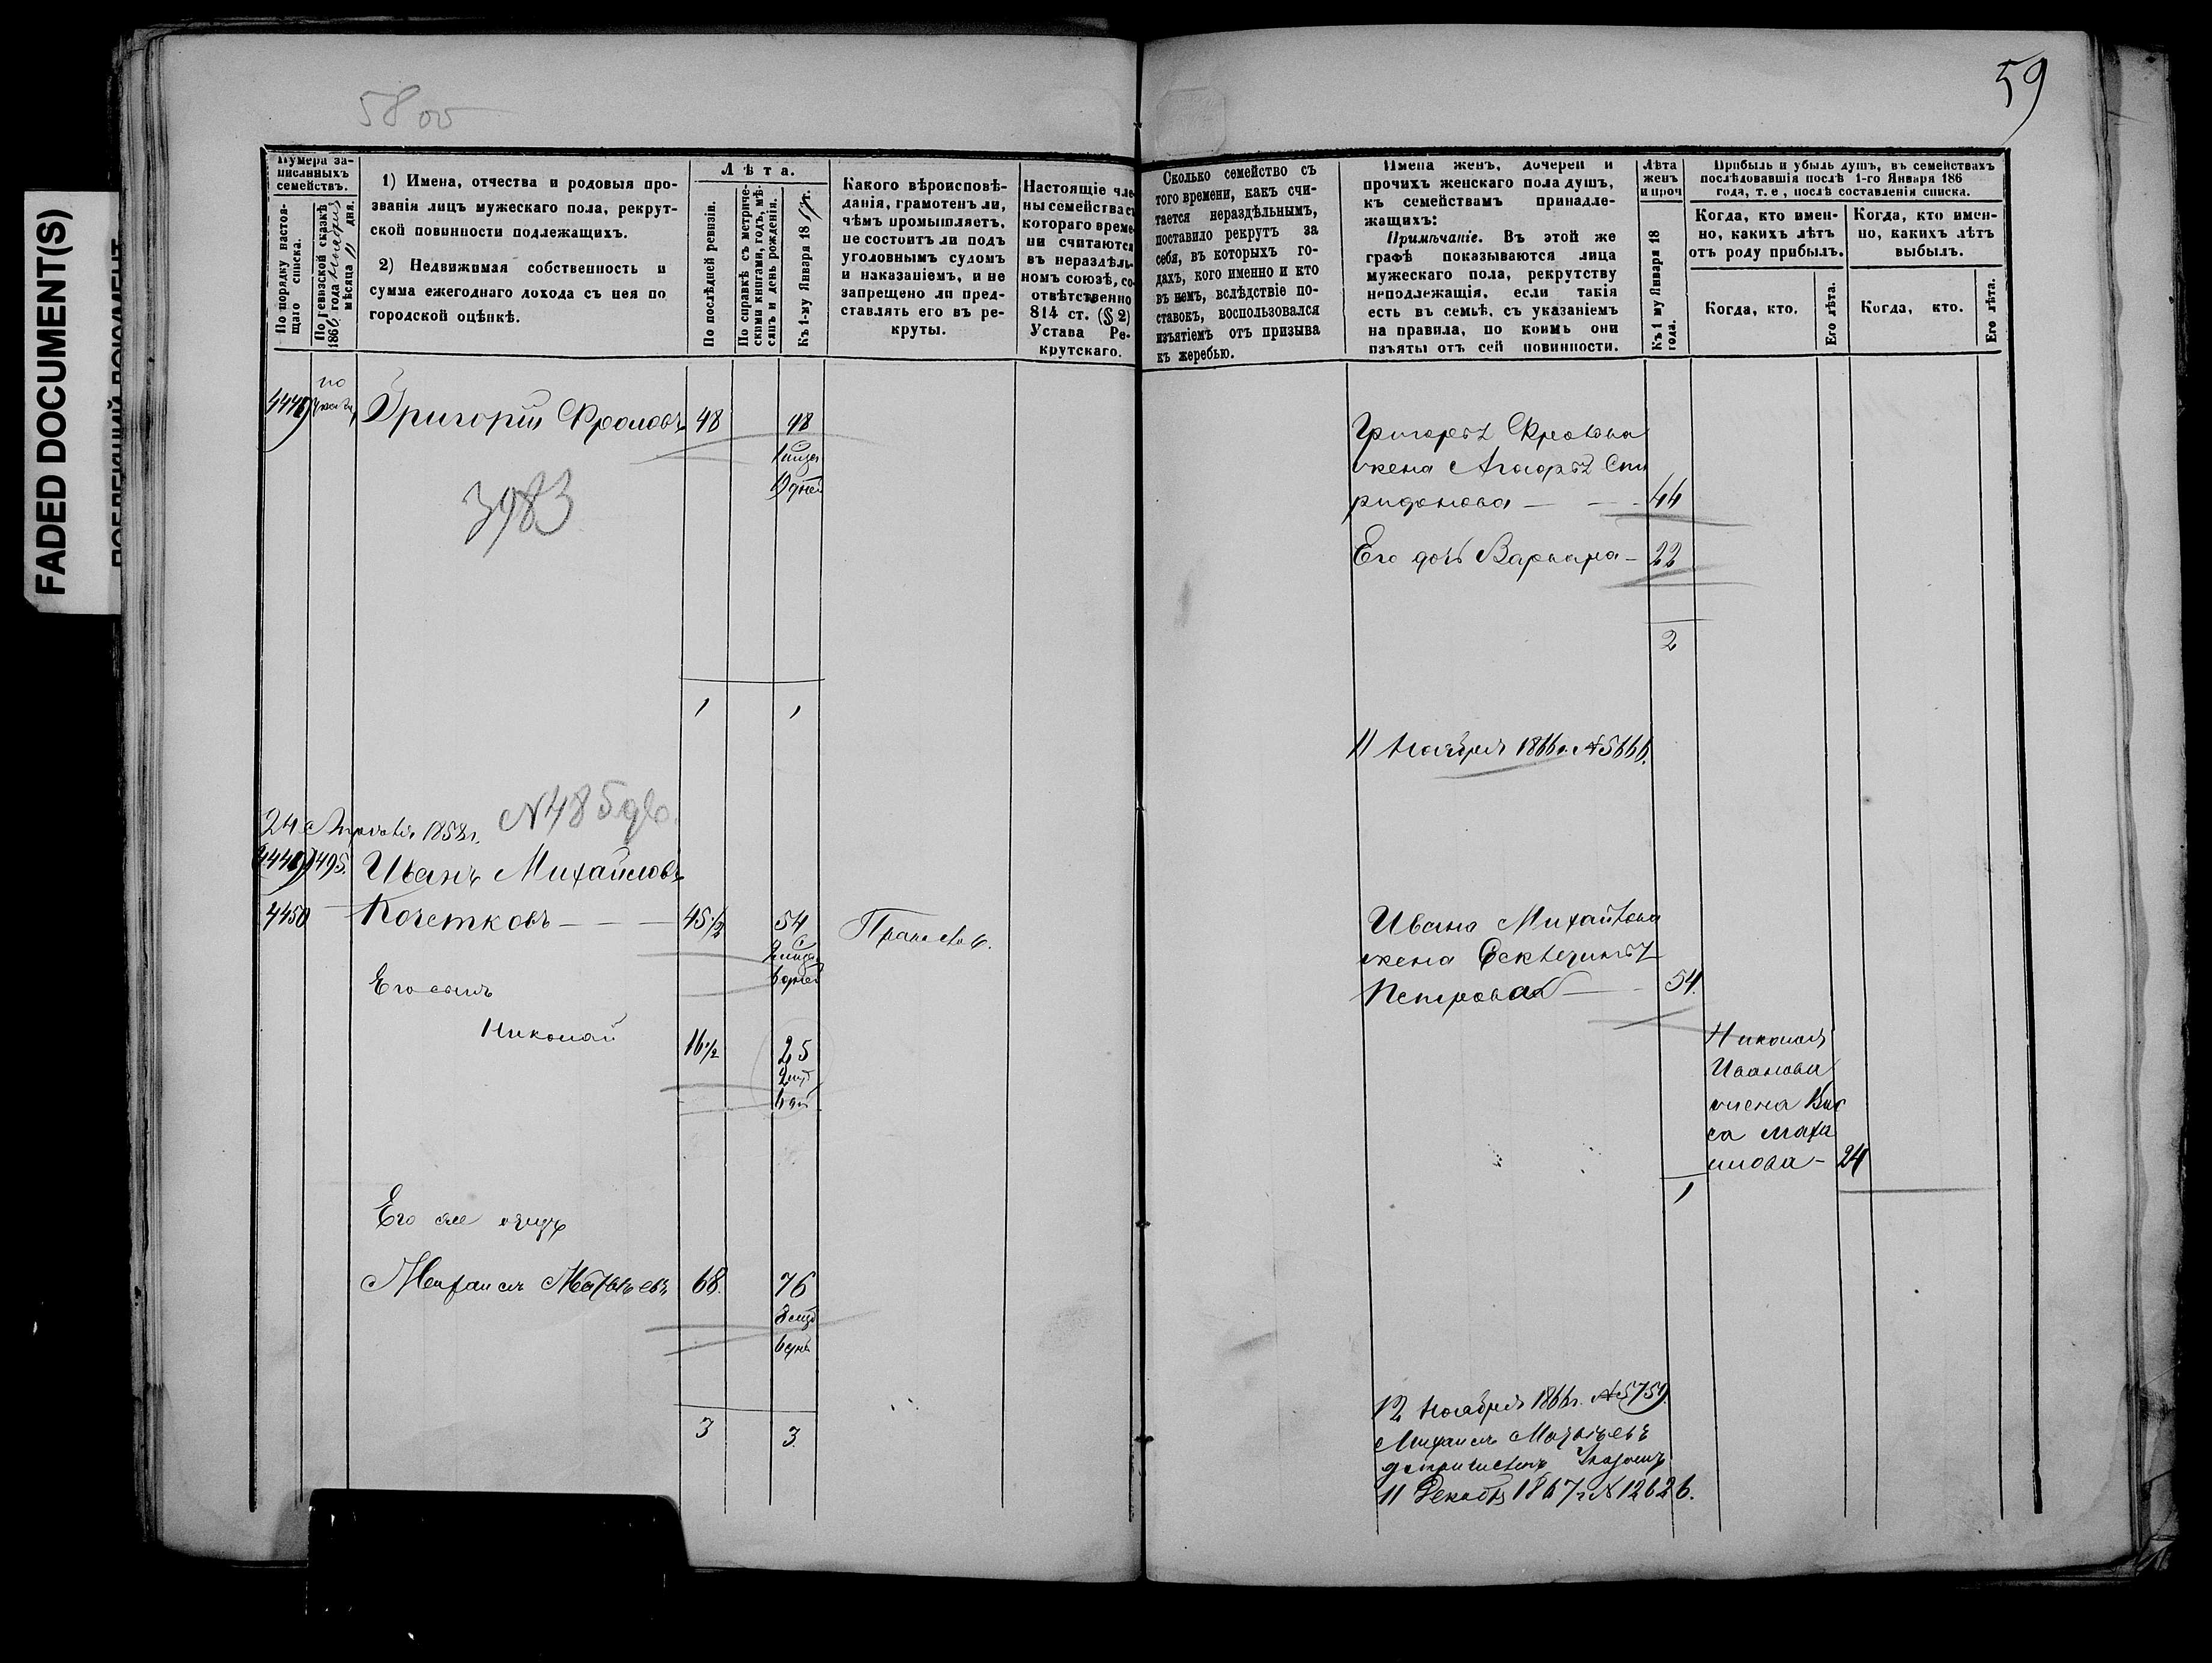 FADED DOCUMENT(S)
5800
59
Нумера записанныхъ семействъ.
По порядку настоящаго списка.
По ревизской сказкѣ 186 года мѣсяца 11 дня.
1) Имена, отчества и родовыя прозванія лицъ мужескаго пола, рекрутской повинности подлежащихъ.
2) Недвижимая собственность и сумма ежегоднаго дохода съ нея по городской оцѣнкѣ.
Лѣта.
По послѣдней ревизіи.
По справкѣ съ метрическими книгами, годъ, мѣсяцъ и день рожденія.
Къ 1-му Января 18
Какого вѣроисповѣданія, грамотенъ ли, чѣмъ промышляетъ, не состоитъ ли подъ уголовнымъ судомъ и наказаніемъ, и не запрещено ли представлять его въ рекруты.
Настоящіе чле-
ны семейства с
котораго време-
ни считаются
въ нераздѣль-
номъ союзѣ, со-
отвѣтственно
814 ст. (§ 2)
Устава Ре-
крутскаго.
Сколько семейство съ
того времени, какъ счи-
тается нераздѣльнымъ,
поставило рекрутъ за
себя, въ которыхъ го-
дахъ, кого именно и кто
въ немъ, вслѣдствіе по-
ставокъ, воспользовался
изъятіемъ отъ призыва
къ жеребью.
Имена женъ, дочерей и
прочихъ женскаго пола душъ,
къ семействамъ принадле-
жащихъ:
Примѣчаніе. Въ этой же
графѣ показываются лица
мужескаго пола, рекрутству
неподлежащія, если такія
есть въ семьѣ, съ указаніемъ
на правила, по коимъ они
изъяты отъ сей повинности.
Лѣта
женъ
и проч
Къ 1 му Января 18 года.
Прибыль и убыль душъ, въ семействахъ
послѣдовавшія послѣ 1-го Января 186
года, т. е, послѣ составленія списка.
Когда, кто имен-
но, какихъ лѣтъ
отъ роду прибылъ.
Когда, кто имен-
но, какихъ лѣтъ
выбылъ.
Когда, кто.
Его лѣта.
Когда, кто.
Его лѣта.
по
Григорій Фроловъ 48 48
3983
Григорья Фролова
жена Агафья Спи
ридонова — 44
Его дочь Варвара — 22
2
1 1
11 Ноября 1866 г. № 5666.
24 Апрѣля 1858 г.
Иванъ Михайловъ
4450 Кочетковъ — 45 1/2 54
Ивана Михайлова
жена Екатерина
Петрова — 54.
Его сынъ
Николай 16 1/2 25
Николая
Иванова
жена
24
1
Его же отецъ
Михаилъ Матвѣевъ 68. 76
3 3.
12 Ноября 1866 г. № 5759.
Михаилъ Матвѣевъ
Указомъ
11 Декабря 1867 г № 12626.